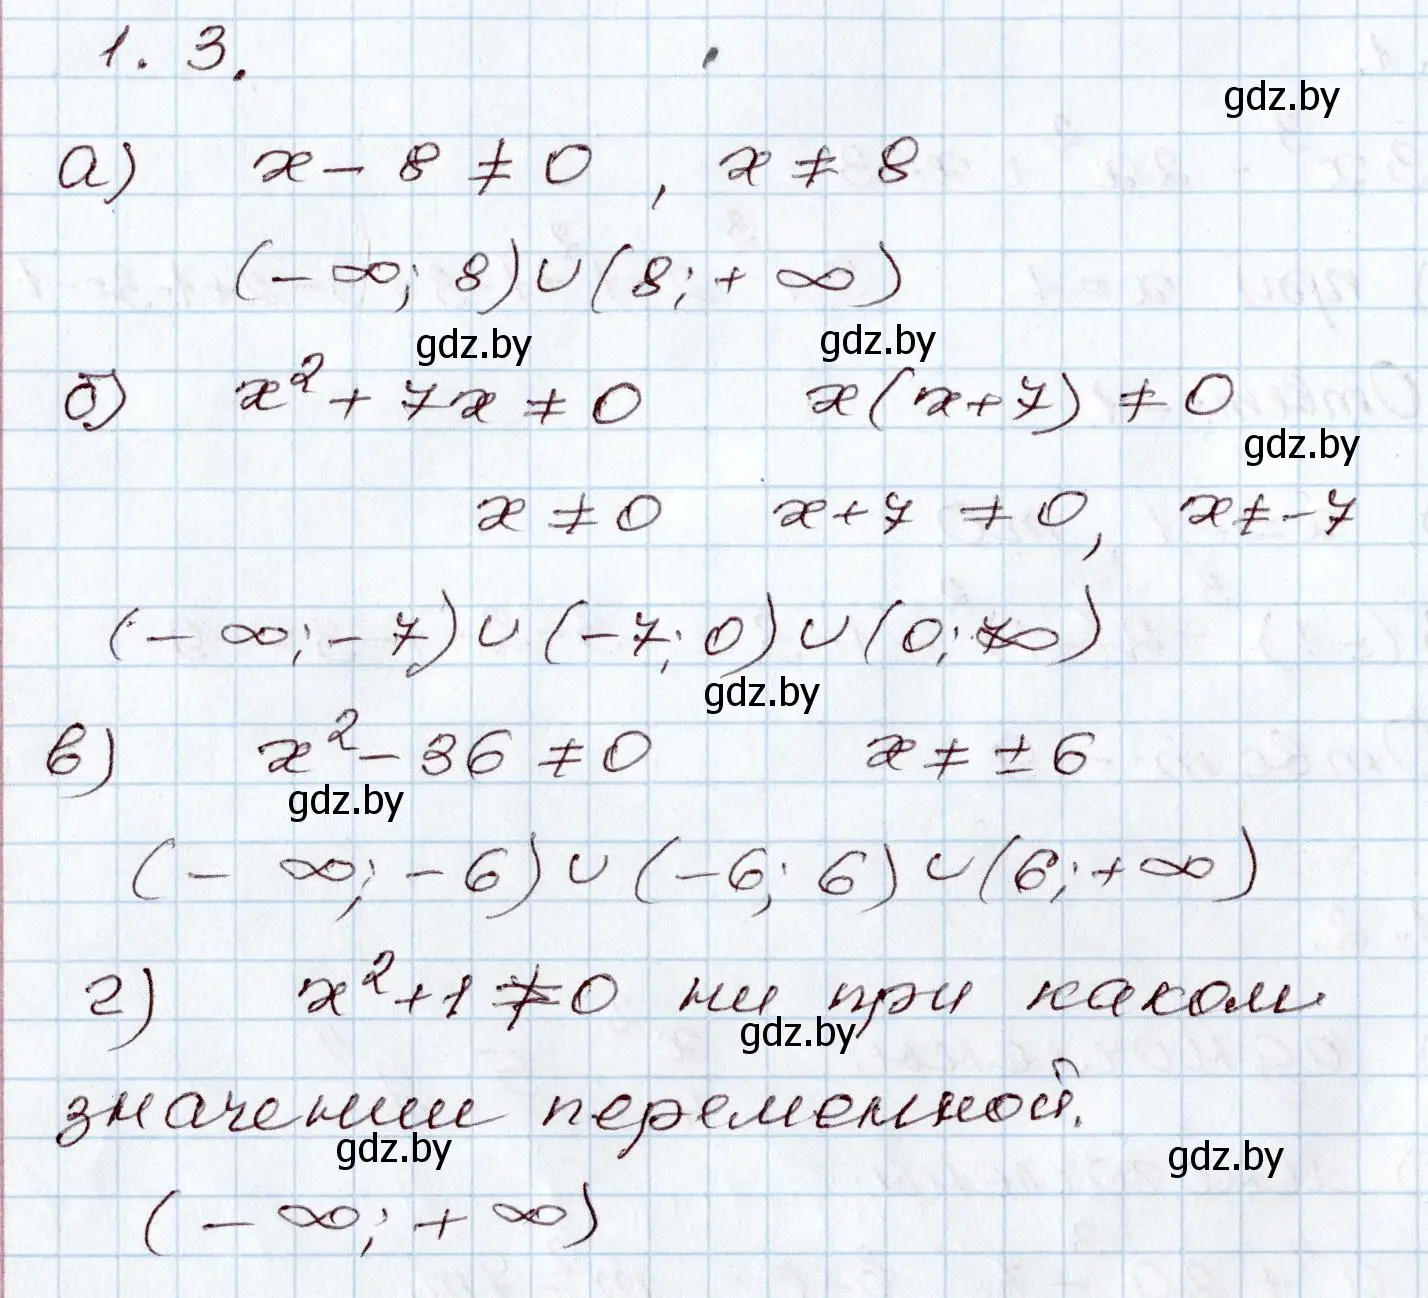 1. 3.
gdz.by
а) x - 8 ≠ 0 , x ≠ 8
(-∞; 8) ∪ (8; +∞)
gdz.by gdz.by
б) x² + 7x ≠ 0 x(x+7) ≠ 0
gdz.by
x ≠ 0 x+7 ≠ 0, x ≠ -7
(-∞; -7) ∪ (-7; 0) ∪ (0; +∞)
gdz.by
в) x² - 36 ≠ 0 x ≠ ±6
gdz.by
(-∞; -6) ∪ (-6; 6) ∪ (6; +∞)
г) x² + 1 ≠ 0 ни при каком
gdz.by
значении переменной.
gdz.by gdz.by
(-∞; +∞)